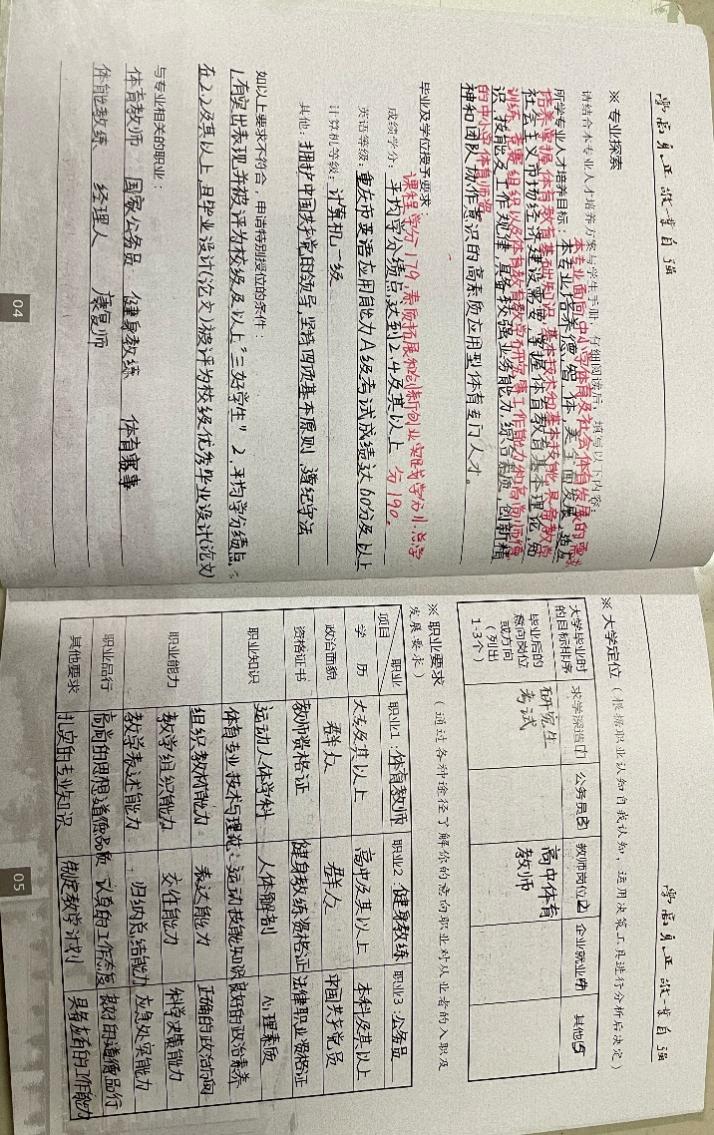 学高身正 敬业自强
※ 专业探索
请结合本专业人才培养方案与学生手册，仔细阅读后，填写以下内容：
所学专业人才培养目标：本专业培养德、智、体、美全面发展，
社会主义市场经济建设需要，掌握体育教育基本理论、知
识、技能及工作规律，具备较强业务能力，综合素质，创新精
神和团队协作意识的高素质应用型体育专门人才。
本专业面向中小学体育及社会体育发展的需求
培养掌握体育教育基础知识、基本技术和基本技能，具备教学
训练、竞赛组织以及体育教育教学研究等工作能力的
的中小学体育师资
毕业及学位授予要求：
课程学分179，素质拓展和创新创业实践学分11，总学
分190。
成绩学分：平均学分绩点达到2.4及其以上
英语等级：重庆市英语应用能力A级考试成绩达60分及以上
计算机等级：计算机一级
其他：拥护中国共产党的领导，坚持四项基本原则，遵纪守法
如以上要求不符合，申请特别授位的条件：
1.有突出表现并被评为校级及以上"三好学生" 2.平均学分绩点
在2.2及其以上且毕业设计(论文)被评为校级优秀毕业设计(论文)
与专业相关的职业：
体育教师 国家公务员 健身教练 体育赛事
体能教练 经理人 康复师
04
学高身正 敬业自强
※ 大学定位（根据职业认知自我认知，运用决策工具进行分析后决定）
大学毕业时的目标排序 求学深造(1) 公务员(3) 教师岗位(2) 企业就业(4) 其他(5)
毕业后的意向岗位或方向（列出1-3个） 研究生考试 高中体育教师
※ 职业要求（通过各种途径了解你的意向职业对从业者的入职及
发展要求）
项目 职业 职业1：体育教师 职业2：健身教练 职业3：公务员
学 历 大专及其以上 高中及其以上 本科及其以上
政治面貌 群众 群众 中国共产党员
资格证书 教师资格证 健身教练资格证 法律职业资格证
职业知识 运动人体学科 人体解剖 心理素质
体育专业技术与理论 运动技能知识 良好的政治素养
职业能力 组织教材能力 表达能力 正确的政治方向
教学组织能力 交往能力 科学决策能力
教学表述能力 归纳总结能力 应急处突能力
职业品行 高尚的思想道德品质 认真的工作态度 良好的道德品行
其他要求 扎实的专业知识 制定教学计划 具备应有的工作能力
05